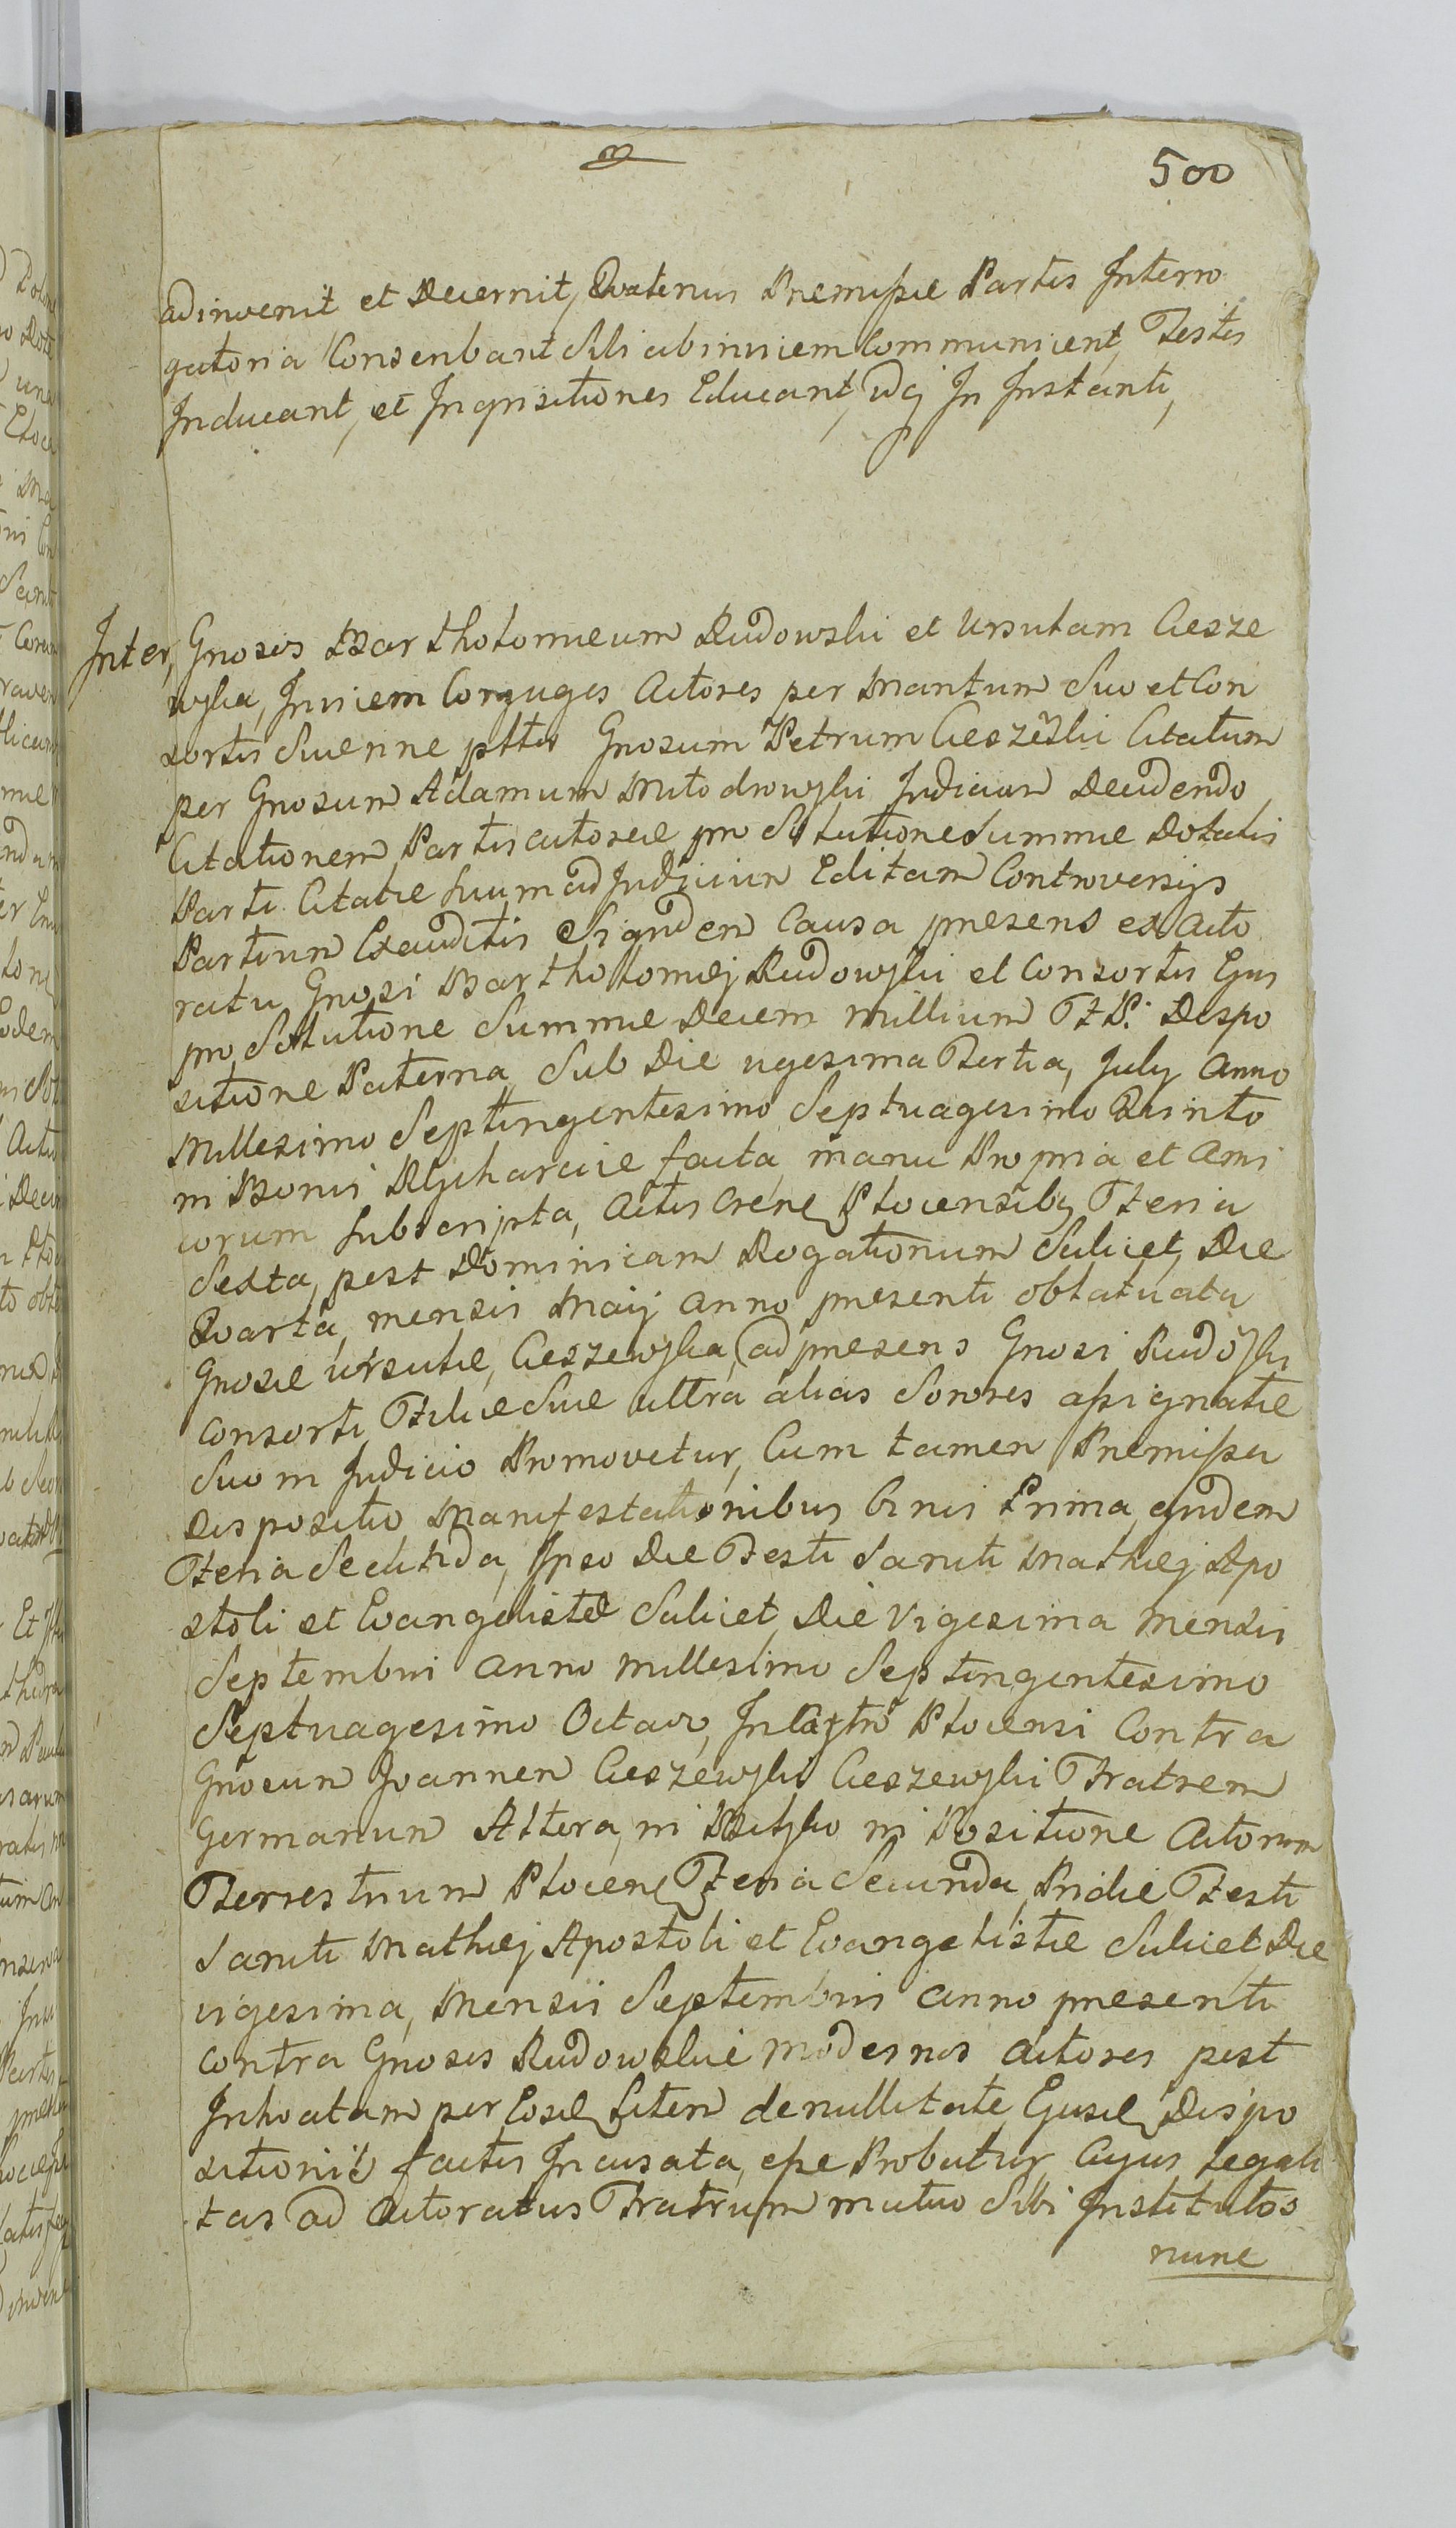 500
adinvenit et Decernit, Quatenus Premissæ Partes Interro
gatoria Conscribant Sibi abinvicem Communicent, Testes
Inducant, et Inqvisitiones Educant, idq In Instanti,
Inter, Gnosos Bartholomæum Rudowski et Ursulam Ciesze
wska, Invicem Conjuges Actores per Mantum Suo et Con
sortis Suæ nne pttes Gnosum Petrum Cieszewski Citatum
per Gnosum Adamum Młodzowski Judicium Decidendo
Citationem Partis actoreæ pro Solutione Summæ Dotalis
Parti Citatæ Suum ad Judicium Editam Controversijs
Partium Exauditis Siqvidem Causa præsens ex Acto
ratu Gnosi Bartholomæj Rudowski et Consortis Ejus
pro Solutione Summæ Decem millium Fl: P: Dispo
sitione Paterna Sub Die vigesima Tertia, July Anno
Millesimo Septingentesimo Septuagesimo Quinto
in Bonis Rycharcice facta, manu Propria et Ami
corum Subscripta, Actis Crene Plocensibq Feria
Sexta, post Dominicam Rogationum Scilicet, Die
Quarta, mensis Maij Anno præsenti oblatuata
Gnosæ Ursulæ, Cieszewska, ad præsens Gnosi Rudowski
Consorti, Filiæ Suæ ultra alias Sorores assignatæ
Suo in Judicio Promovetur, Cum tamen Præmissa
Dispositio Manifestationibus Binis Prima, eqvidem
Feria Secunda, Ipso Die Festi Sancti Mathæj Apo
stoli et Evangelistæ Scilicet, Die Vigesima Mensis
Septembris Anno Millesimo Septingentesimo
Septuagesimo Octavo, In Castro Plocensi Contra
Gnosum Joannem Cieszewski Cieszewski Fratrem
Germanum Altera, in Bielsko in Positione Actorum
Terrestrium Plocen Feria Secunda, Pridie Festi
Sancti Mathæj Apostoli et Evangelistæ Scilicet Die
vigesima, Mensis Septembris Anno præsenti
Contra Gnosos Rudowskie modernos Actores post
Inhoatam per Eosd Litem de nullitate Ejusd Dispo
sitionis factis Incusata, esse Probatur, Cujus Legali
tas ad Actoratus Fratrum mutuo Sibi Institutos
nunc